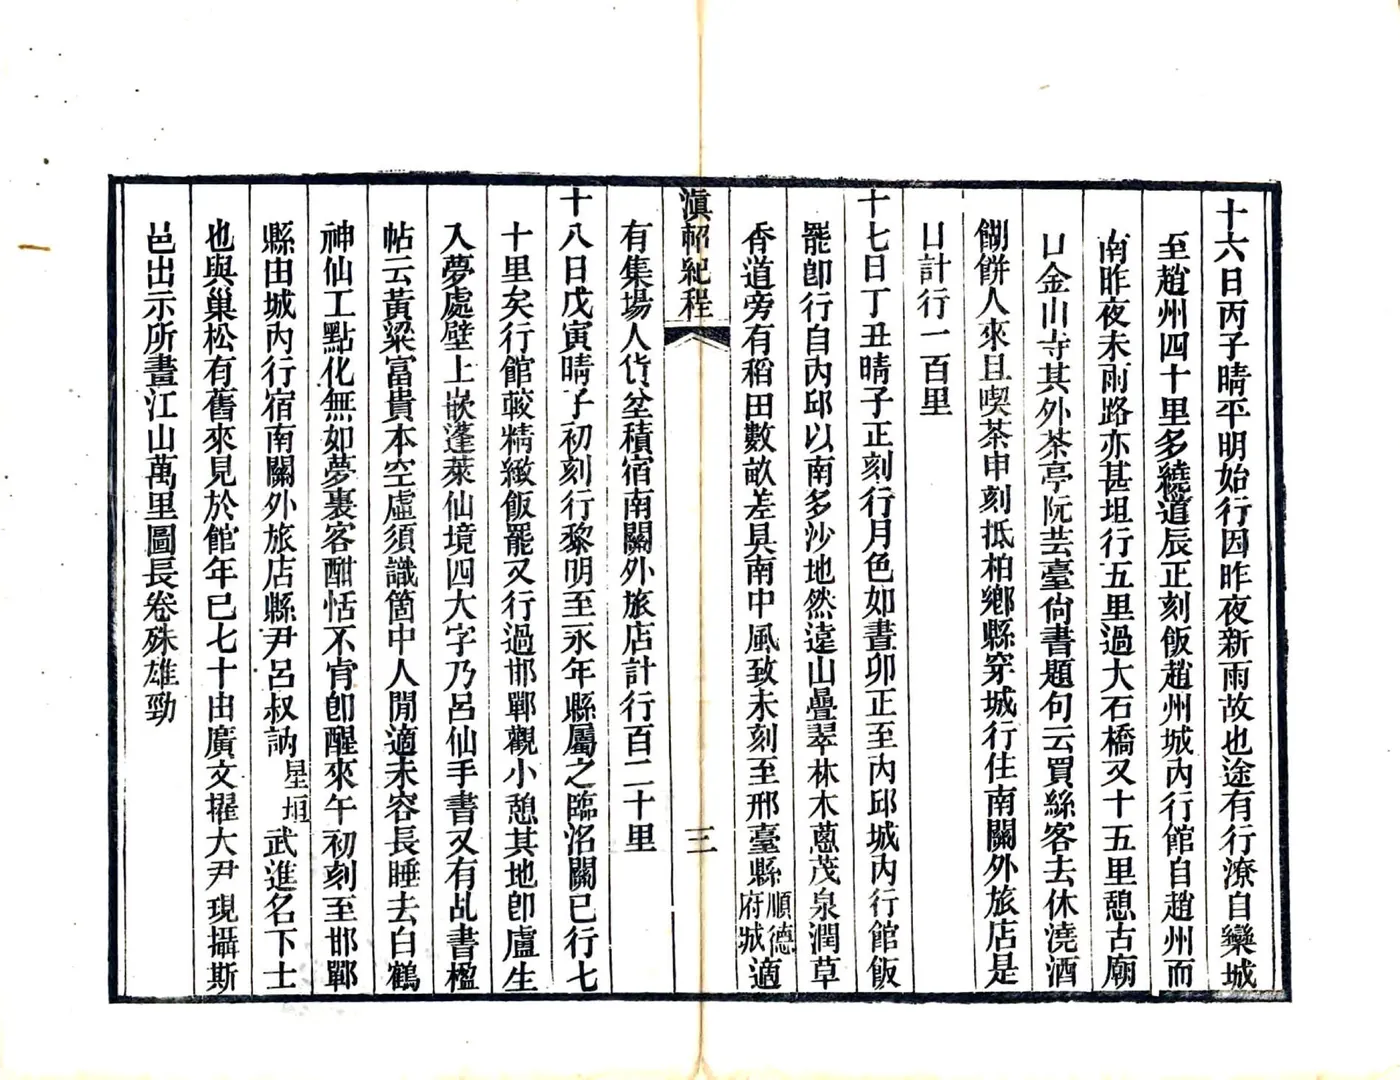 十六日丙子晴平明始行因昨夜新雨故也途有行潦自欒城
至趙州四十里多繞道辰正刻飯趙州城內行館自趙州而
南昨夜未雨路亦甚坦行五里過大石橋又十五里憩古廟
曰金山寺其外茶亭阮芸臺尙書題句云買絲客去休澆酒
餬餅人來且喫茶申刻抵柏鄉縣穿城行住南關外旅店是
日計行一百里
十七日丁丑晴子正刻行月色如晝卯正至內邱城內行館飯
罷卽行自內邱以南多沙地然遠山疊翠林木蔥茂泉潤草
香道旁有稻田數畝差具南中風致未刻至邢臺縣順德府城適
滇軺紀程
三
有集場人貨坌積宿南關外旅店計行百二十里
十八日戊寅晴子初刻行黎明至永年縣屬之臨洺關已行七
十里矣行館較精緻飯罷又行過邯鄲觀小憩其地卽盧生
入夢處壁上嵌蓬萊仙境四大字乃呂仙手書又有乩書楹
帖云黃粱富貴本空虛須識箇中人閒適未容長睡去白鶴
神仙工點化無如夢裏客酣恬不肯卽醒來午初刻至邯鄲
縣由城內行宿南關外旅店縣尹呂叔訥星垣武進名下士
也與巢松有舊來見於館年已七十由廣文擢大尹現攝斯
邑出示所畫江山萬里圖長卷殊雄勁